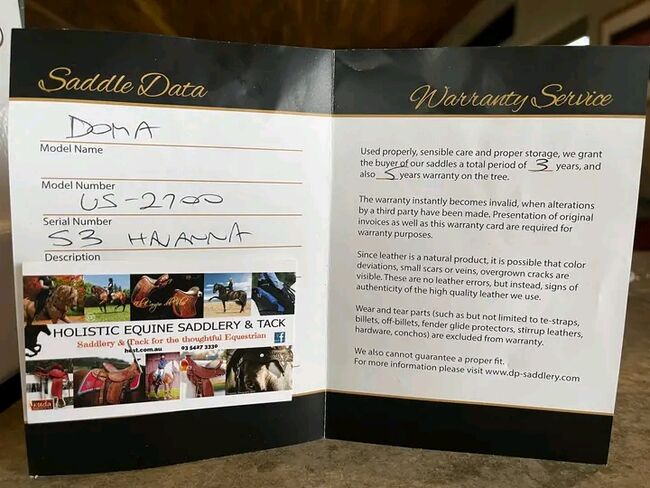 Saddle Data
DOMA
Model Name
Model Number
US-2700
Serial Number
S3 HAVANNA
Description
HOLISTIC EQUINE SADDLERY & TACK
Saddlery & Tack for the thoughtful Equestrian
hest.com.au 03 5427 3330
Warranty Service
Used properly, sensible care and proper storage, we grant
the buyer of our saddles a total period of 3 years, and
also 5 years warranty on the tree.
The warranty instantly becomes invalid, when alterations
by a third party have been made. Presentation of original
invoices as well as this warranty card are required for
warranty purposes.
Since leather is a natural product, it is possible that color
deviations, small scars or veins, overgrown cracks are
visible. These are no leather errors, but instead, signs of
authenticity of the high quality leather we use.
Wear and tear parts (such as but not limited to te-straps,
billets, off-billets, fender glide protectors, stirrup leathers,
hardware, conchos) are excluded from warranty.
We also cannot guarantee a proper fit.
For more information please visit www.dp-saddlery.com